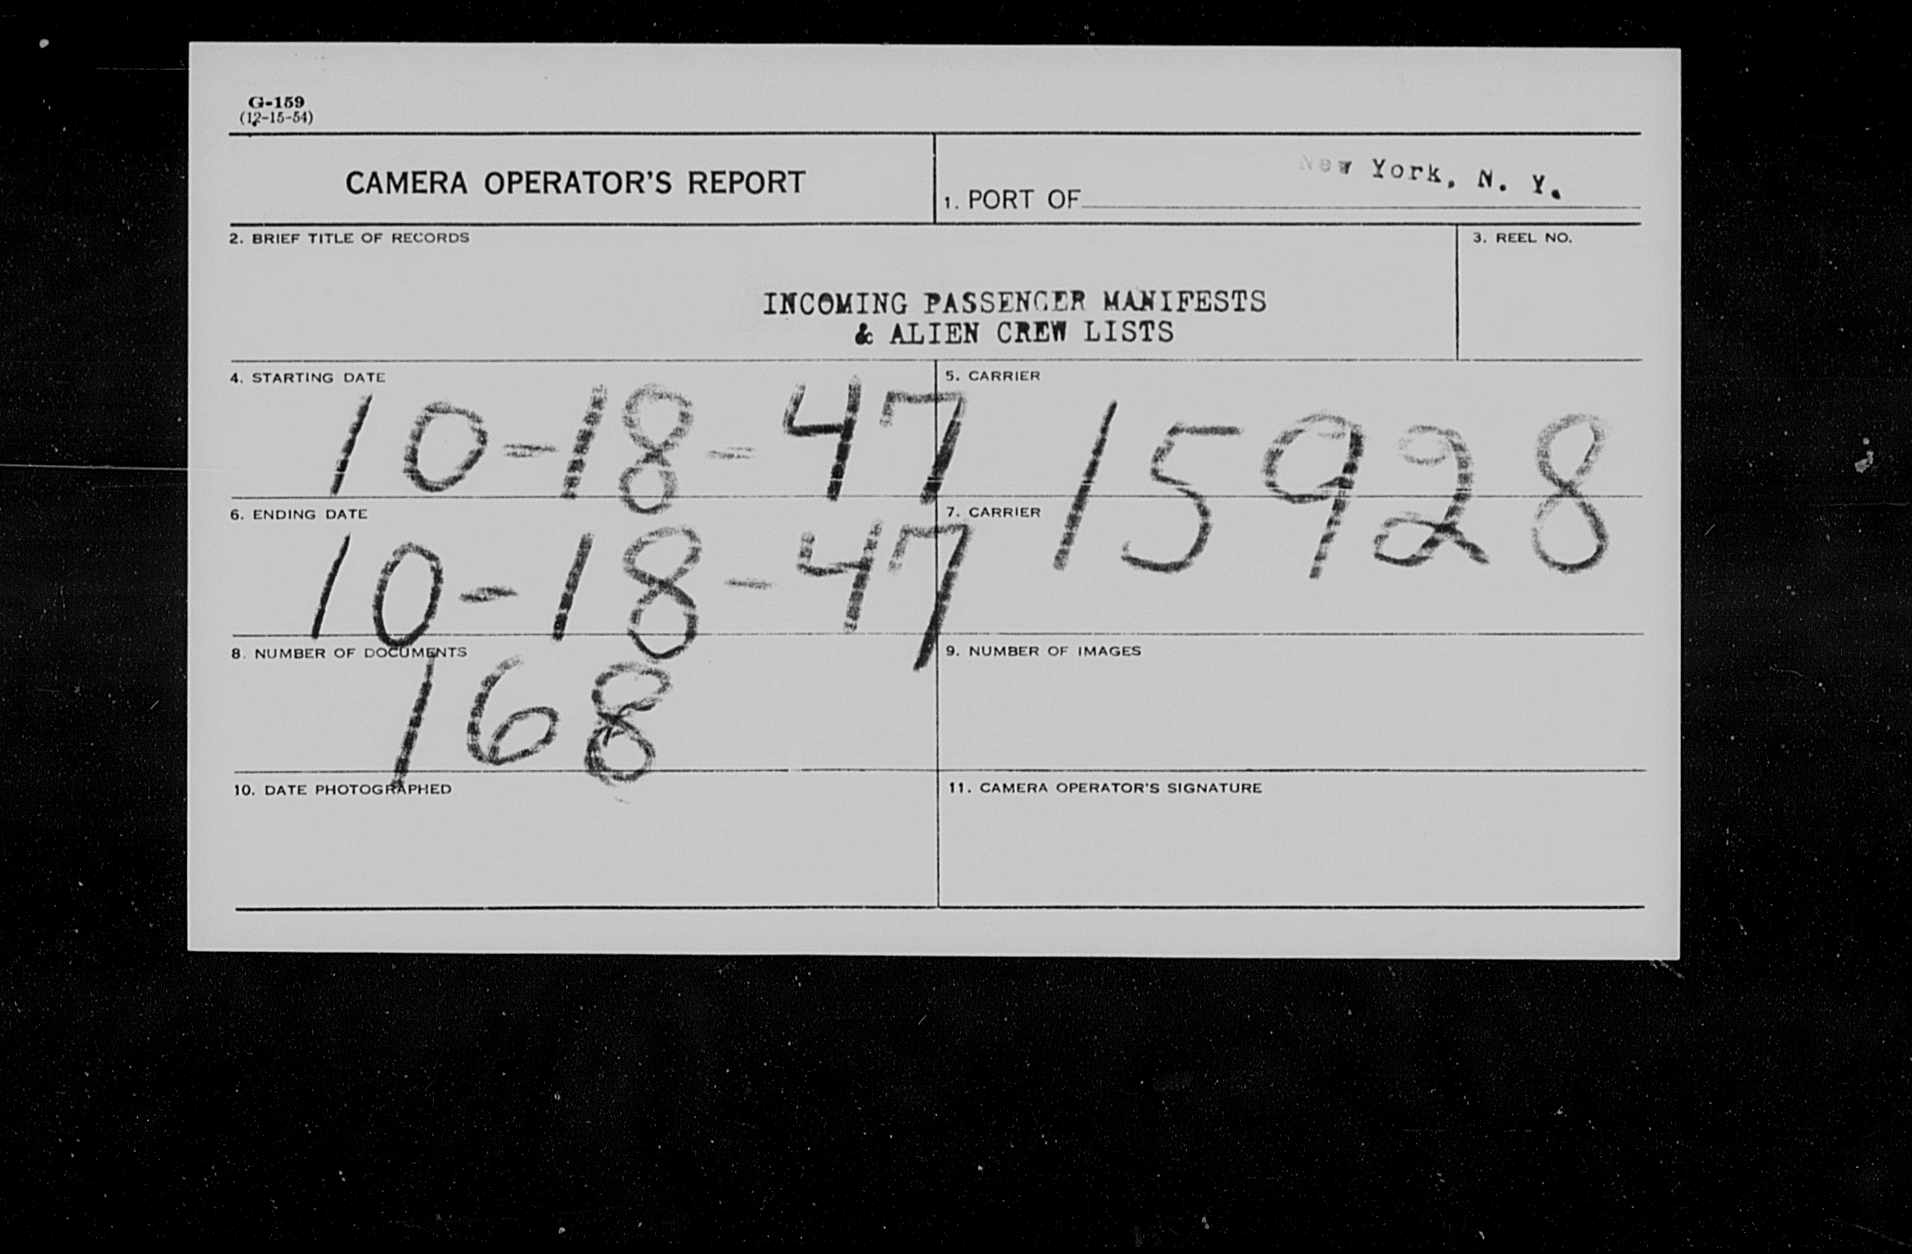 G-159
(12-15-54)
CAMERA OPERATOR'S REPORT
1. PORT OF New York, N. Y.
2. BRIEF TITLE OF RECORDS
3. REEL NO.
INCOMING PASSENGER MANIFESTS
& ALIEN CREW LISTS
4. STARTING DATE
10-18-47
5. CARRIER
15928
6. ENDING DATE
10-18-47
7. CARRIER
8. NUMBER OF DOCUMENTS
168
9. NUMBER OF IMAGES
10. DATE PHOTOGRAPHED
11. CAMERA OPERATOR'S SIGNATURE